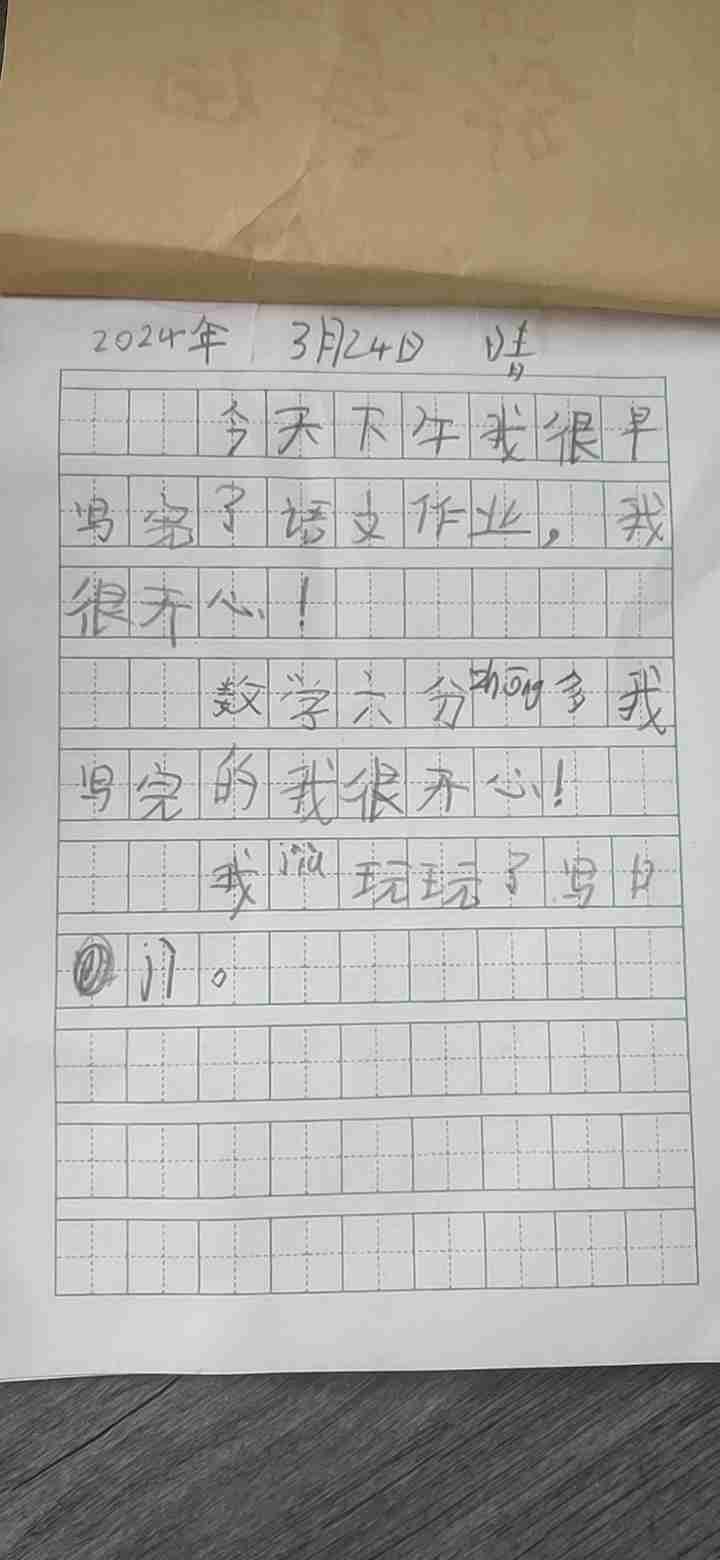 2024年 3月24日 晴
今天下午我很早
写完了语文作业，我
很开心！
数学六分zhōng多我
写完的我很开心！
我jiù玩玩了写日
jì。